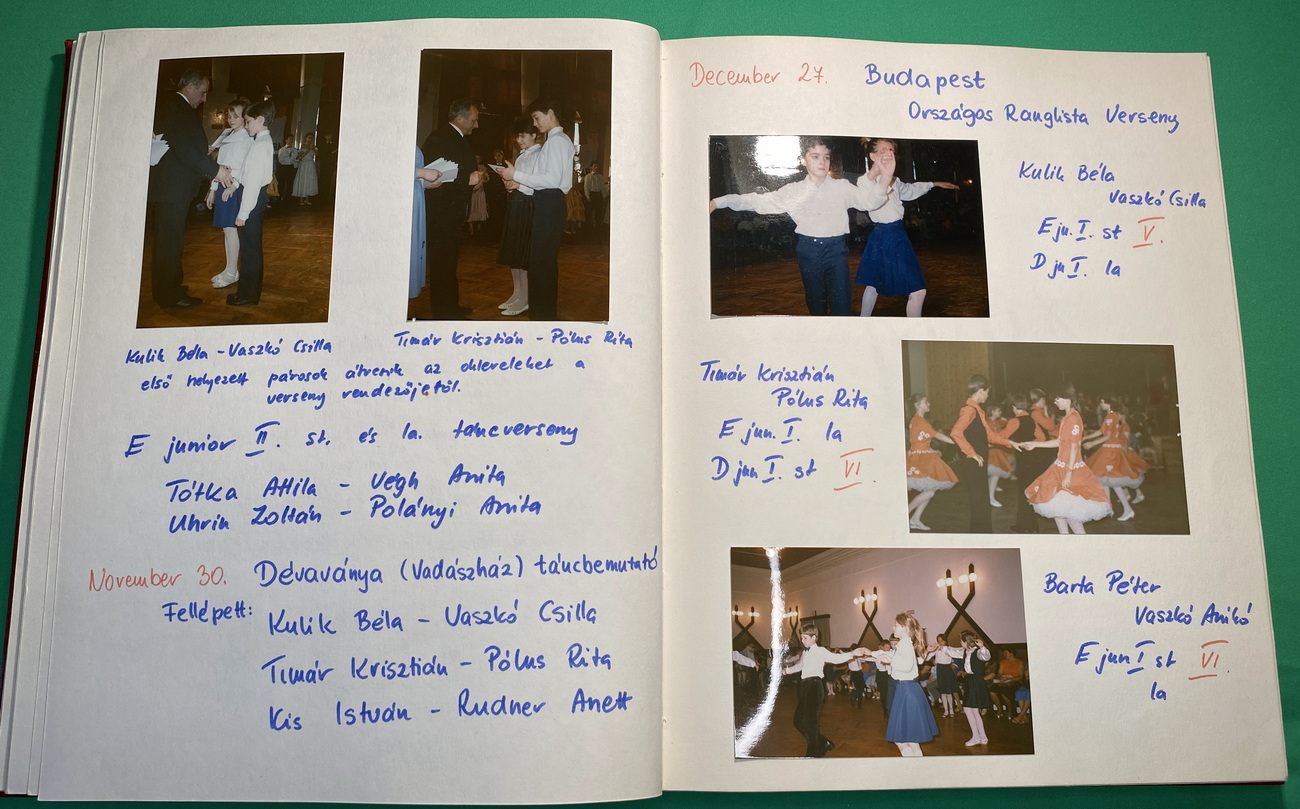 Kulik Béla - Vaszkó Csilla
Timár Krisztián - Pólus Rita
első helyezett párosok átveszik az okleveleket a
verseny rendezőjétől.
E junior II. st. és la. táncverseny
Tótka Attila - Végh Anita
Uhrin Zoltán - Polányi Anita
November 30. Dévaványa (Vadászház) táncbemutató
Fellépett: Kulik Béla - Vaszkó Csilla
Timár Krisztián - Pólus Rita
Kis István - Rudner Anett
December 27. Budapest
Országos Ranglista Verseny
Kulik Béla
Vaszkó Csilla
E ju. I. st V.
D ju I. la
Timár Krisztián
Pólus Rita
E jun. I. la
D jun I. st VI.
Barta Péter
Vaszkó Anikó
E jun I st VI.
la